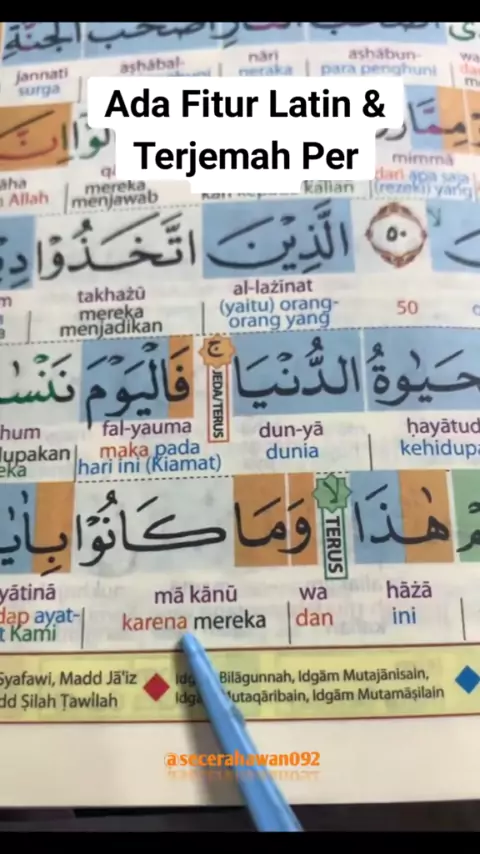 ashābal- nāri ashābun-
jannati neraka para penghuni
surga
Ada Fitur Latin &
Terjemah Per
mimmā
mereka dari apa saja
Allah menjawab kalian (rezeki) yang
الَّذِيْنَ اتَّخَذُوْا ٥٠
takhażū al-lażīnat
mereka (yaitu) orang- 50
menjadikan orang yang
الدُّنْيَا ۚ فَالْيَوْمَ
JEDA/TERUS
hum fal-yauma dun-yā ḥayātud
lupakan maka pada dunia
hari ini (Kiamat)
هٰذَا ۙ وَمَا كَانُوْا
TERUS
yātinā mā kānū wa hāżā
ayat- karena mereka dan ini
Kami
Syafawi, Madd Jā'iz Bilāgunnah, Idgām Mutajānisain,
Ṣilah Ṭawīlah Mutaqāribain, Idgām Mutamāṣilain
@secerahawan092